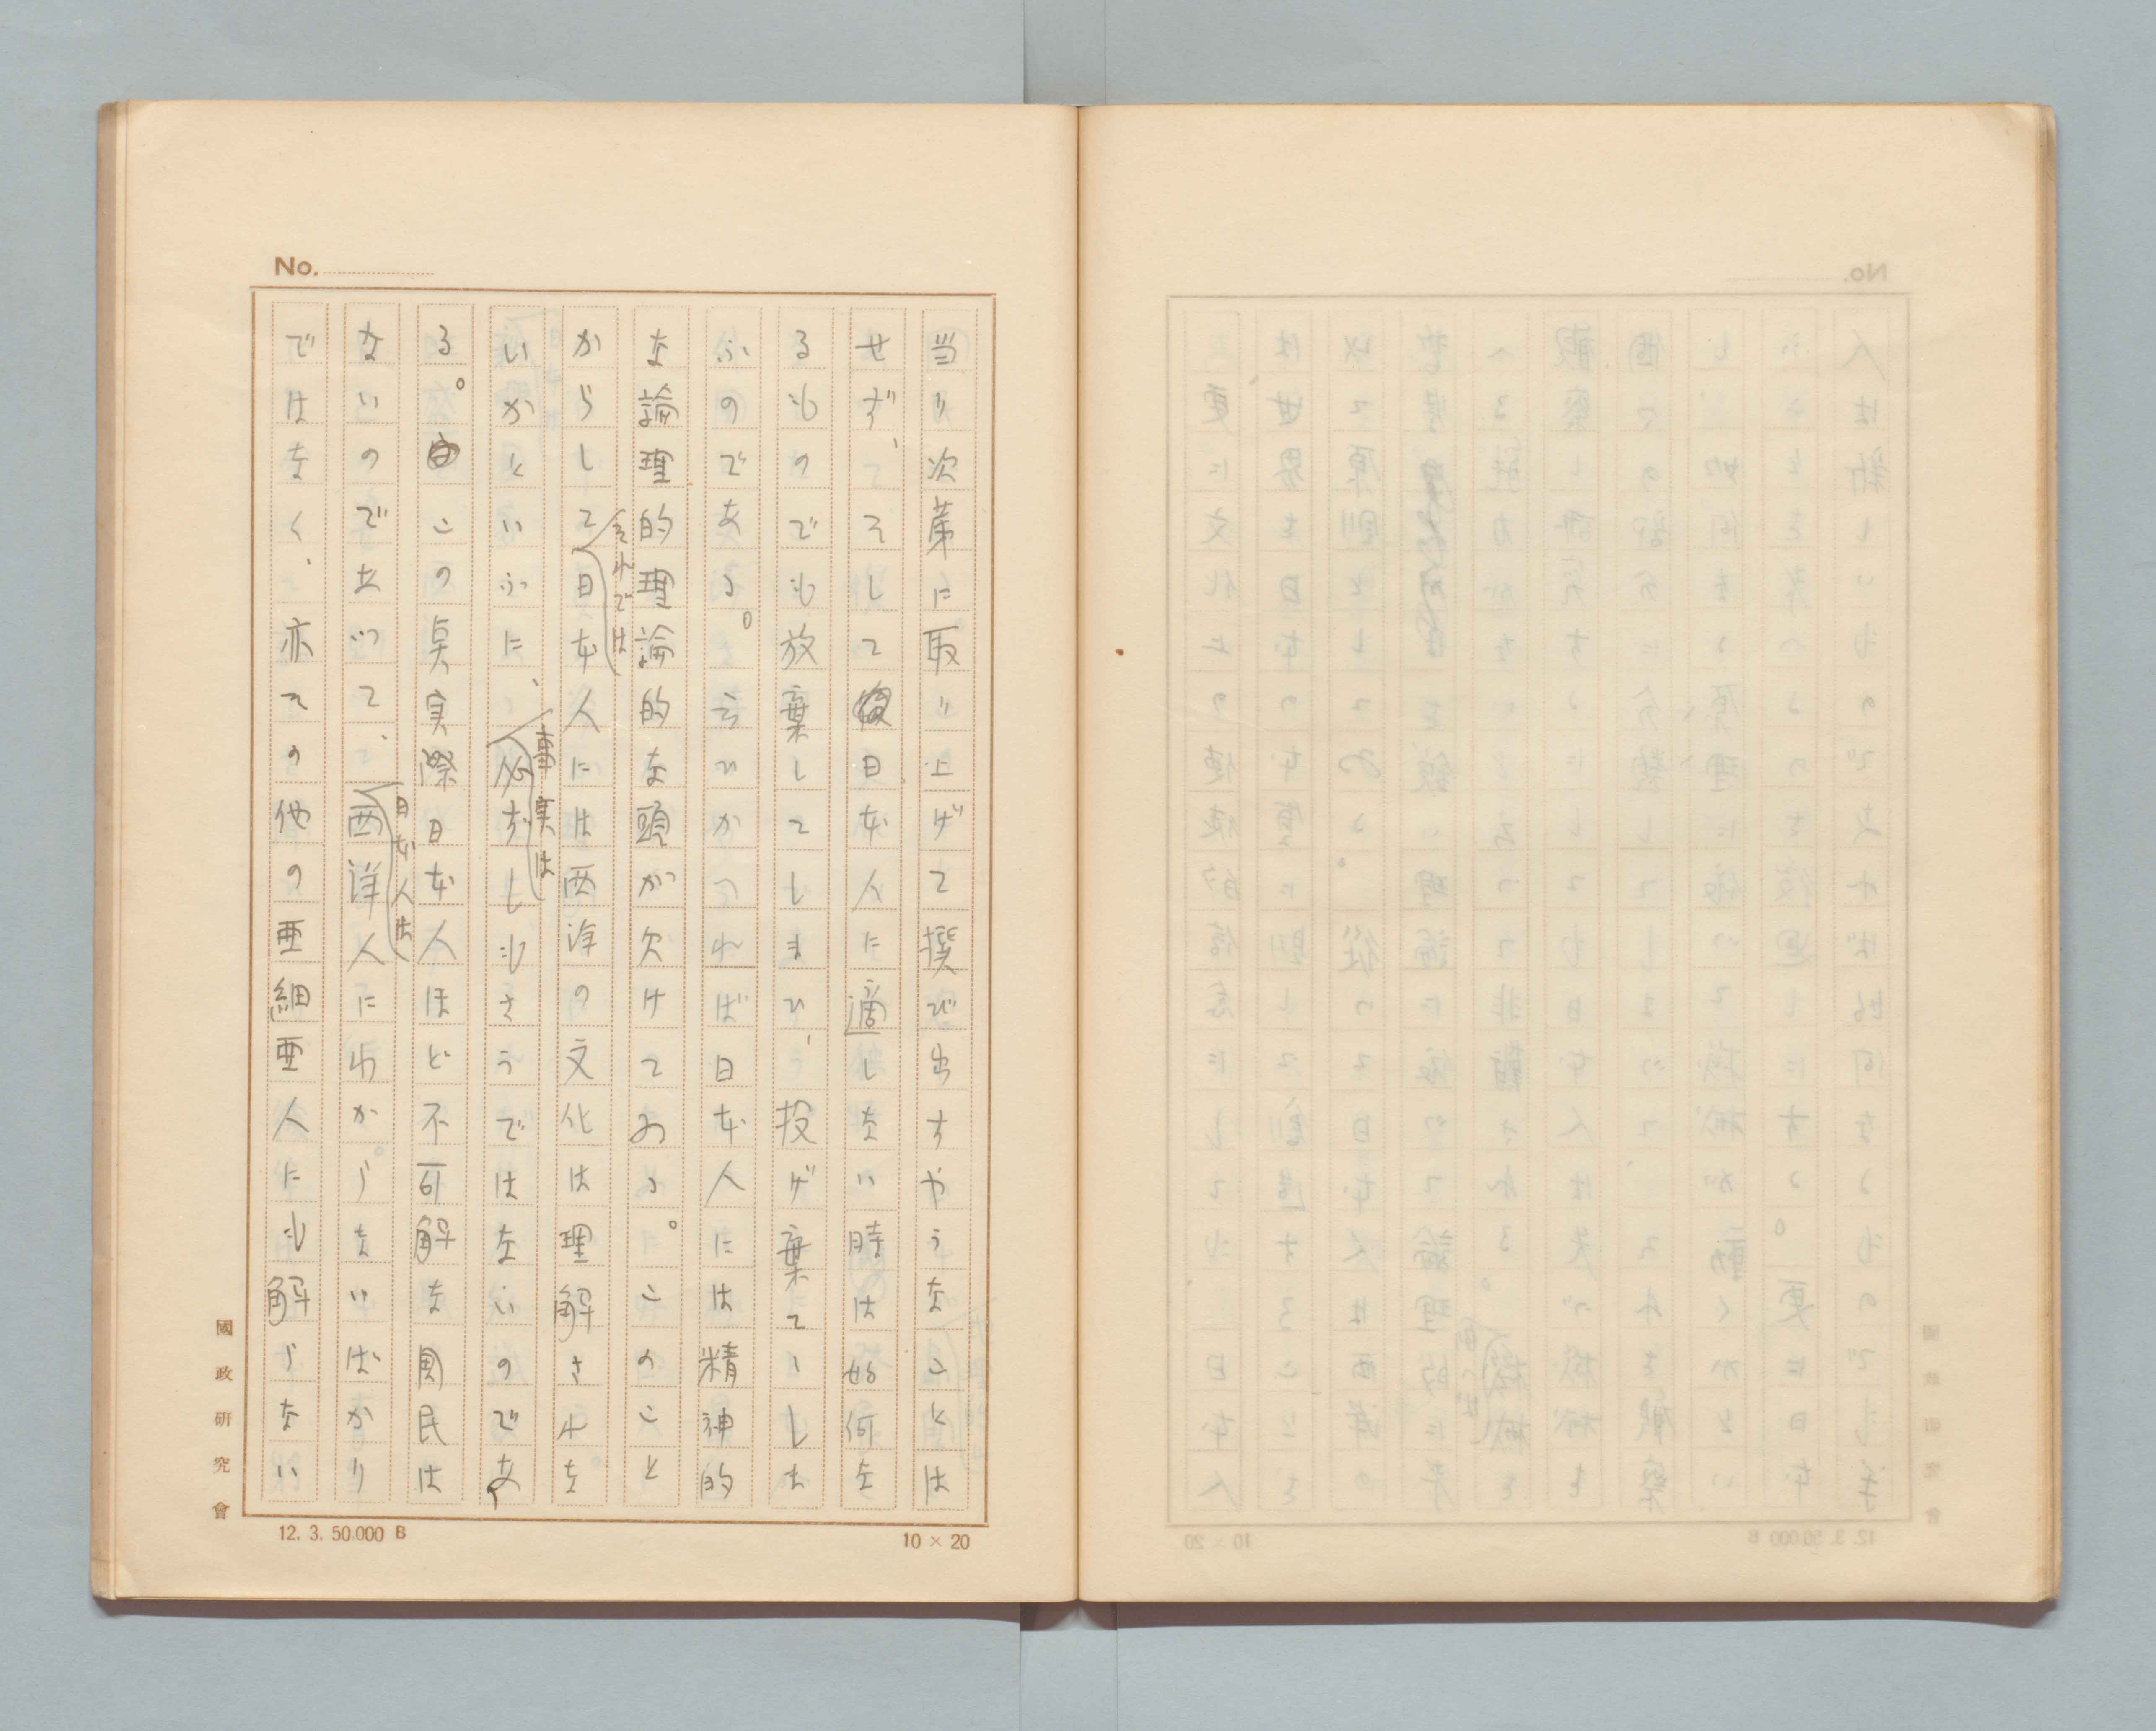 No.
当り次第に取り上げて撰び出すやうなことは
せず、そして日本人に適しない時は如何な
るものでも放棄してしまひ、投げ棄てゝしま
ふのである。云ひかつれば日本人には精神的
な論理的理論的な頭が欠けてゐる。このこと
からしてそれでは日本人には西洋の文化は理解されな
いかといふに、事実は必ずしもさうではないのであ
る。この真実際日本人ほど不可解な国民は
ないのであつて、日本人は西洋人にわからないばかり
ではなく、亦その他の亜細亜人にも解らない
國政研究會
12. 3. 50.000 B
10 × 20